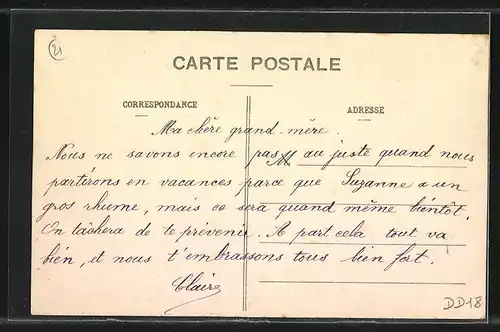 21
CARTE POSTALE
CORRESPONDANCE
ADRESSE
Ma chère grand-mère.
Nous ne savons encore pas au juste quand nous
partirons en vacances parce que Suzanne a un
gros rhume, mais ce sera quand même bientôt.
On tâchera de te prévenir. A part cela tout va
bien, et nous t'embrassons tous bien fort.
Claire
DD18